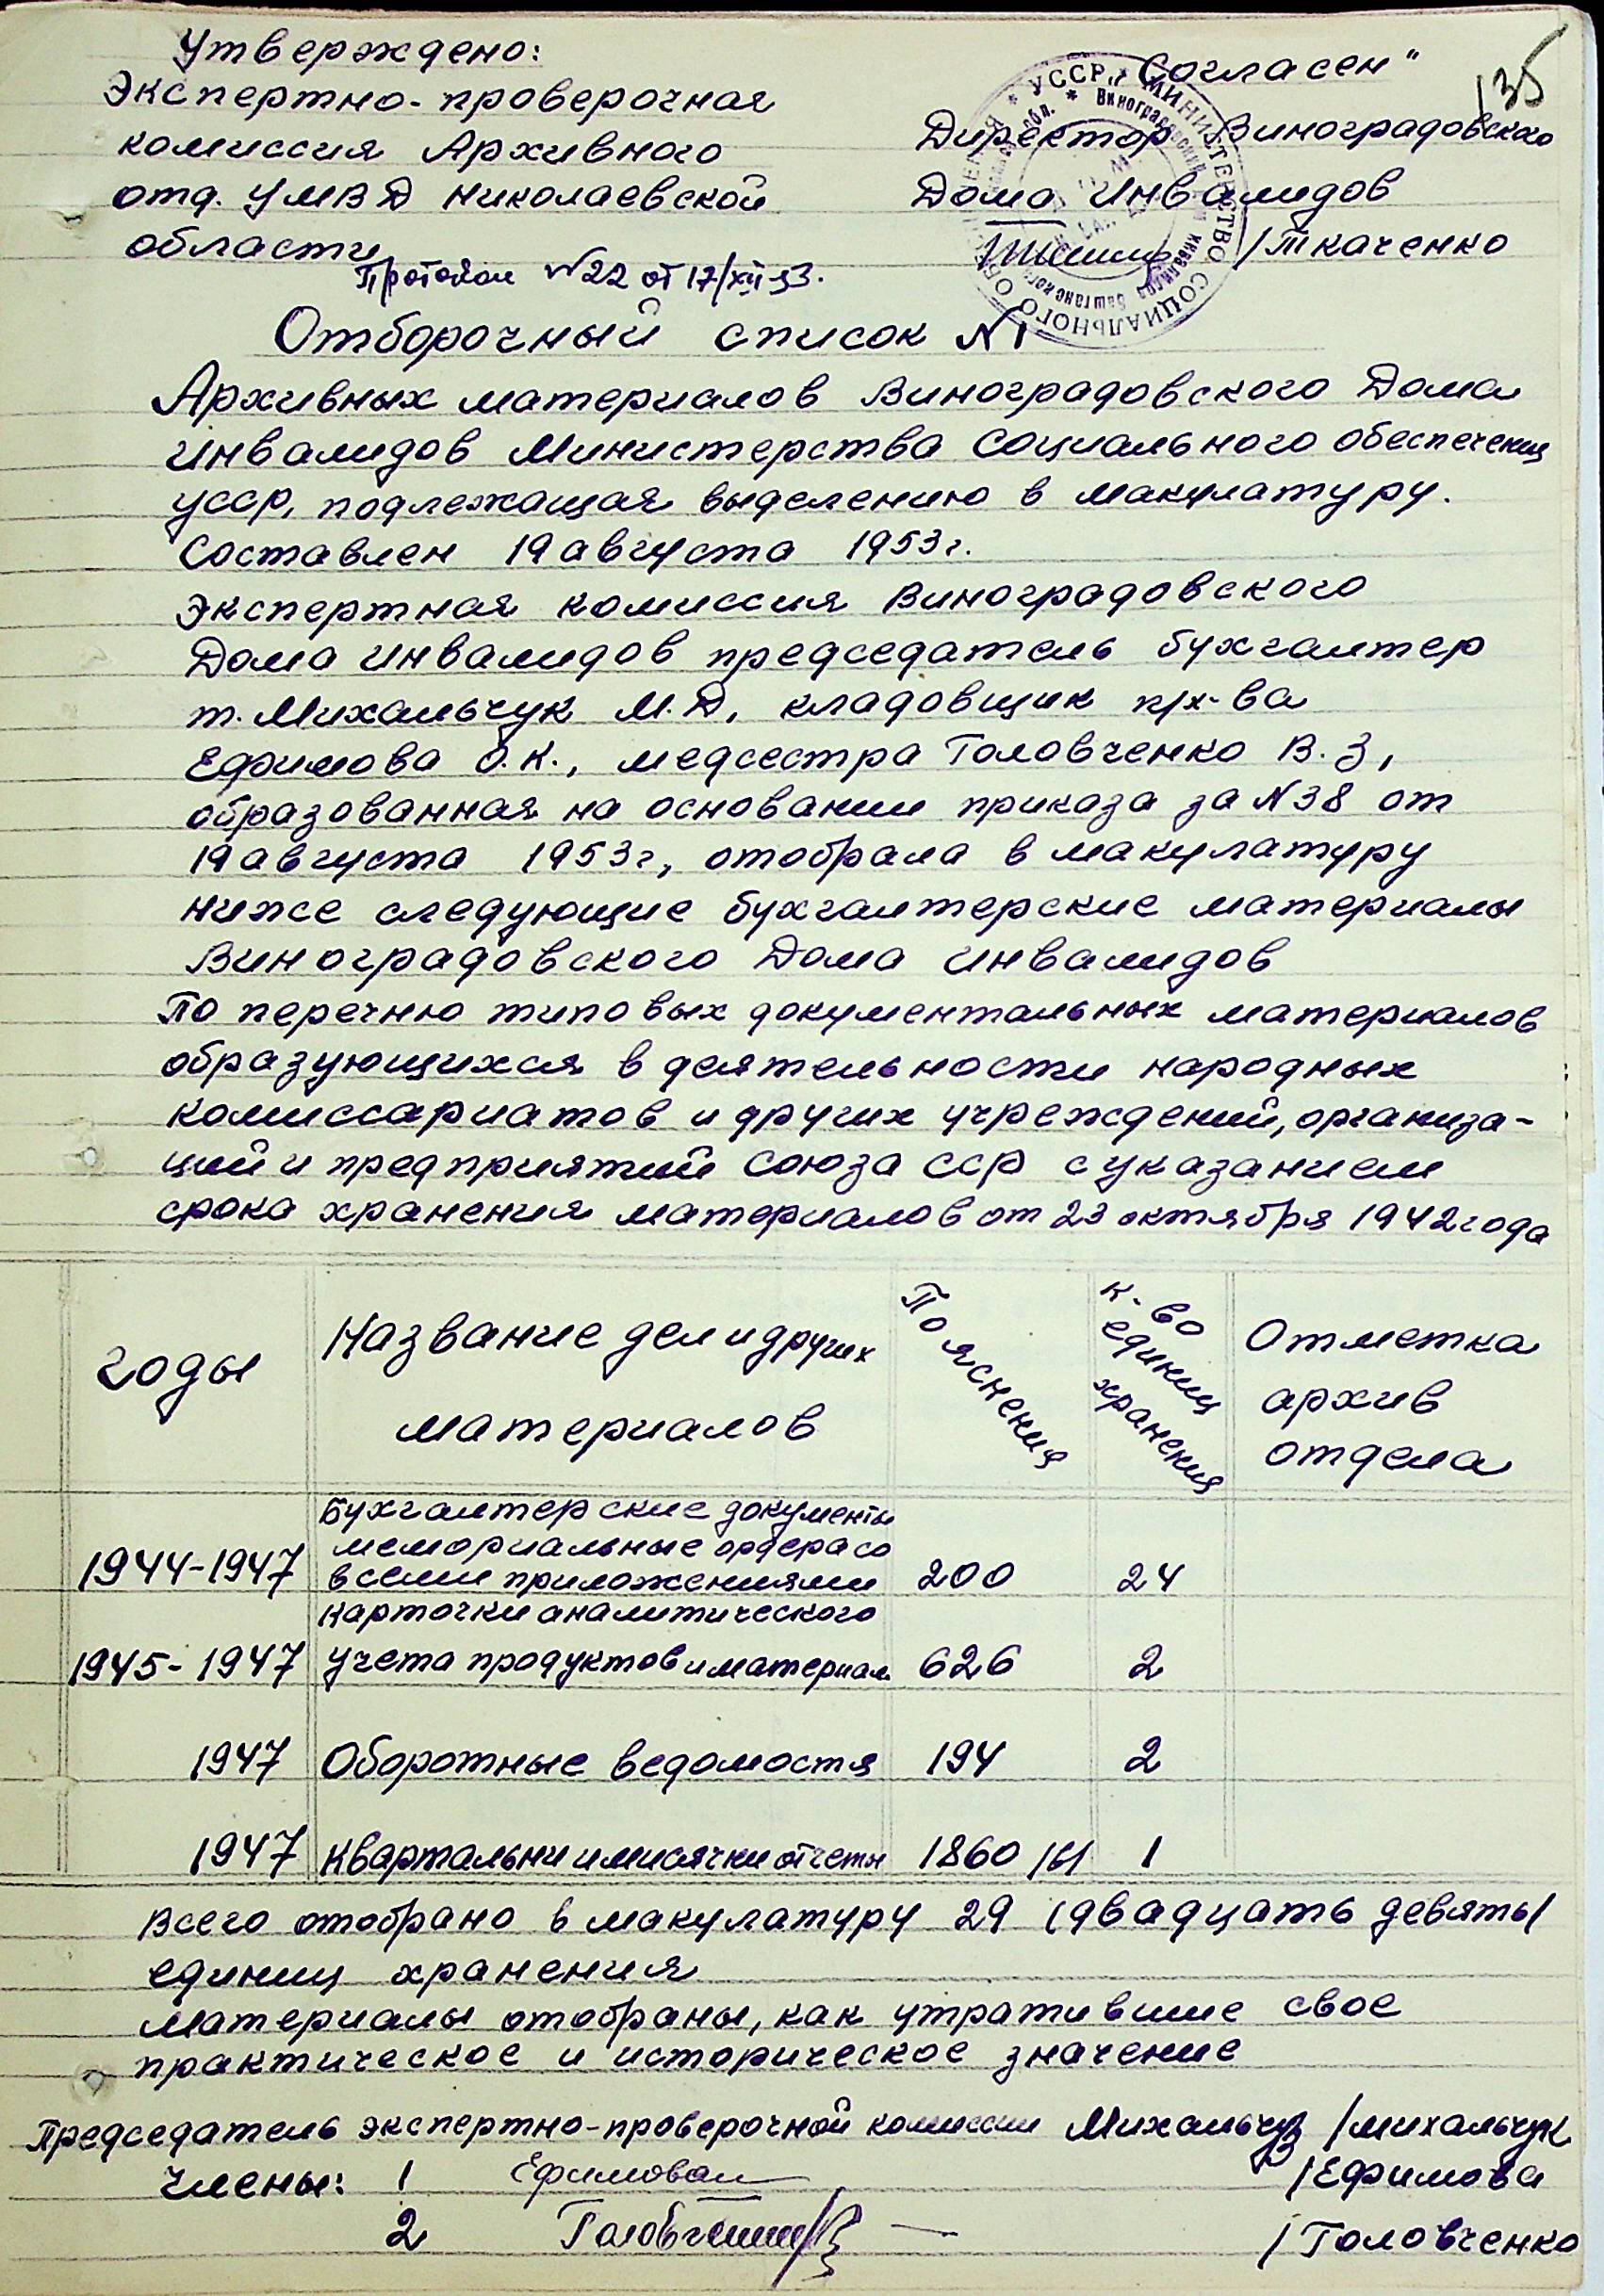 135
Утверждено:
Экспертно-проверочная
комиссия Архивного
отд. УМВД Николаевской
области
Протокол №22 от 17/XII-53.
"Согласен"
Директор Виноградовского
Дома Инвалидов
/Ткаченко
* УССР * МИНИСТЕРСТВО СОЦИАЛЬНОГО
Отборочный список №1
Архивных материалов Виноградовского Дома
инвалидов Министерства Социального обеспечения
УССР, подлежащая выделению в макулатуру.
Составлен 19 августа 1953г.
Экспертная комиссия Виноградовского
Дома инвалидов председатель бухгалтер
т. Михальчук М.Д, кладовщик п/х-ва
Ефимова О.К., медсестра Головченко В.З,
образованная на основании приказа за №38 от
19 августа 1953г, отобрала в макулатуру
ниже следующие бухгалтерские материалы
Виноградовского Дома инвалидов
По перечню типовых документальных материалов
образующихся в деятельности народных
комиссариатов и других учреждений, организа-
ций и предприятий Союза ССР с указанием
срока хранения материалов от 23 октября 1942 года
Годы
Название дел и других
материалов
Пояснения
к-во
единиц
хранения
Отметка
архив
отдела
Бухгалтерские документы
мемориальные ордера со
1944-1947 всеми приложениями 200 24
карточки аналитического
1945-1947 учета продуктов и материал 626 2
1947 Оборотные ведомостя 194 2
1947 Квартальни и мисячни отчеты 1860 1
Всего отобрано в макулатуру 29 (двадцать девять)
единиц хранения
Материалы отобраны, как утратившие свое
практическое и историческое значение
Председатель экспертно-проверочной комиссии Михальчук /Михальчук
Члены: 1 Ефимова /Ефимова
2 Головченко /Головченко